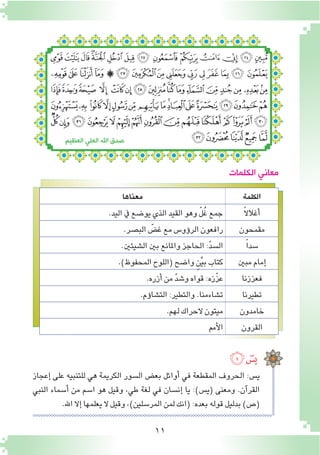 مُّبِينٍ ﴿٢٤﴾ إِنِّىٓ ءَامَنتُ بِرَبِّكُمْ فَٱسْمَعُونِ ﴿٢٥﴾ قِيلَ ٱدْخُلِ ٱلْجَنَّةَ قَالَ يَٰلَيْتَ قَوْمِى
يَعْلَمُونَ ﴿٢٦﴾ بِمَا غَفَرَ لِى رَبِّى وَجَعَلَنِى مِنَ ٱلْمُكْرَمِينَ ﴿٢٧﴾ ۞ وَمَآ أَنزَلْنَا عَلَىٰ قَوْمِهِۦ
مِنۢ بَعْدِهِۦ مِن جُندٍ مِّنَ ٱلسَّمَآءِ وَمَا كُنَّا مُنزِلِينَ ﴿٢٨﴾ إِن كَانَتْ إِلَّا صَيْحَةً وَٰحِدَةً فَإِذَا
هُمْ خَٰمِدُونَ ﴿٢٩﴾ يَٰحَسْرَةً عَلَى ٱلْعِبَادِ مَا يَأْتِيهِم مِّن رَّسُولٍ إِلَّا كَانُوا۟ بِهِۦ يَسْتَهْزِءُونَ
﴿٣٠﴾ أَلَمْ يَرَوْا۟ كَمْ أَهْلَكْنَا قَبْلَهُم مِّنَ ٱلْقُرُونِ أَنَّهُمْ إِلَيْهِمْ لَا يَرْجِعُونَ ﴿٣١﴾ وَإِن كُلٌّ
لَّمَّا جَمِيعٌ لَّدَيْنَا مُحْضَرُونَ ﴿٣٢﴾
صدق الله العلي العظيم
معاني الكلمات
الكلمة معناها
أغلالاً جمع غُلّ وهو القيد الذي يوضع في اليد.
مقمحون رافعون الرؤوس مع غضّ البصر.
سداً السدُّ: الحاجز والمانع بين الشيئين.
إمام مبين كتاب بيِّن واضح (اللوح المحفوظ).
فعززنا عزّزه: قواه وشدَّ من أزره.
تطيرنا تشاءمنا. والتطير: التشاؤم.
خامدون ميتون لاحراك لهم.
القرون الأمم
يسٓ ﴿١﴾
يس: الحروف المقطعة في أوائل بعض السور الكريمة هي للتنبيه على إعجاز
القرآن. ومعنى (يس): يا إنسان في لغة طي، وقيل هو اسم من أسماء النبي
(ص) بدليل قوله بعده: (انك لمن المرسلين)، وقيل لا يعلمها إلا الله.
١١